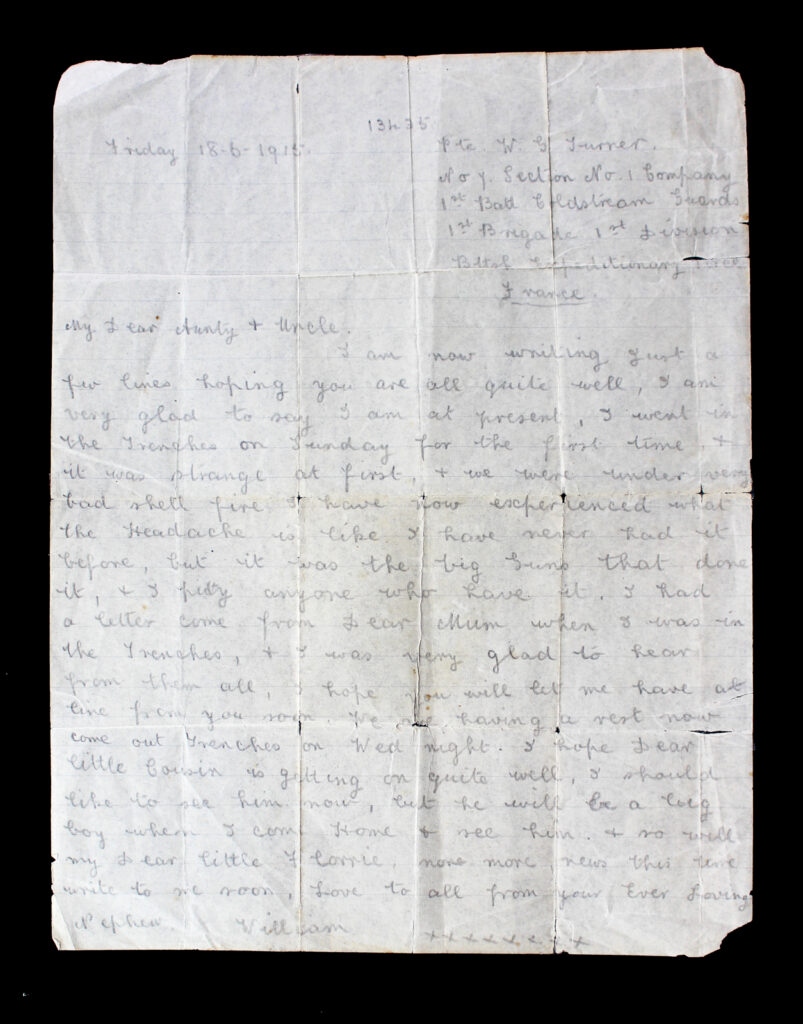 13435
Friday 18-6-1915.
Pte. W. G Turner.
No 7. Section No. 1 Company
1st Batt Coldstream Guards
1st Brigade 1st Division
British Expeditionary Force
France.
My Dear Aunty & Uncle.
I am now writing just a
few lines hoping you are all quite well, I am
very glad to say I am at present, I went in
the Trenches on Sunday for the first time, &
it was strange at first, & we were under very
bad shell fire I have now experienced what
the Headache is like I have never had it
before, but it was the big Guns that done
it, & I pity anyone who have it. I had
a letter come from Dear Mum when I was in
the Trenches, & I was very glad to hear
from them all, I hope you will let me have at
line from you soon. We are having a rest now
come out Trenches on Wed night. I hope Dear
little Cousin is getting on quite well, I should
like to see him now, but he will be a big
boy when I come Home & see him. & so will
my Dear little Florrie. none more news this time
write to me soon, Love to all from your Ever Loving
Nephew. William
x x x x x x x x